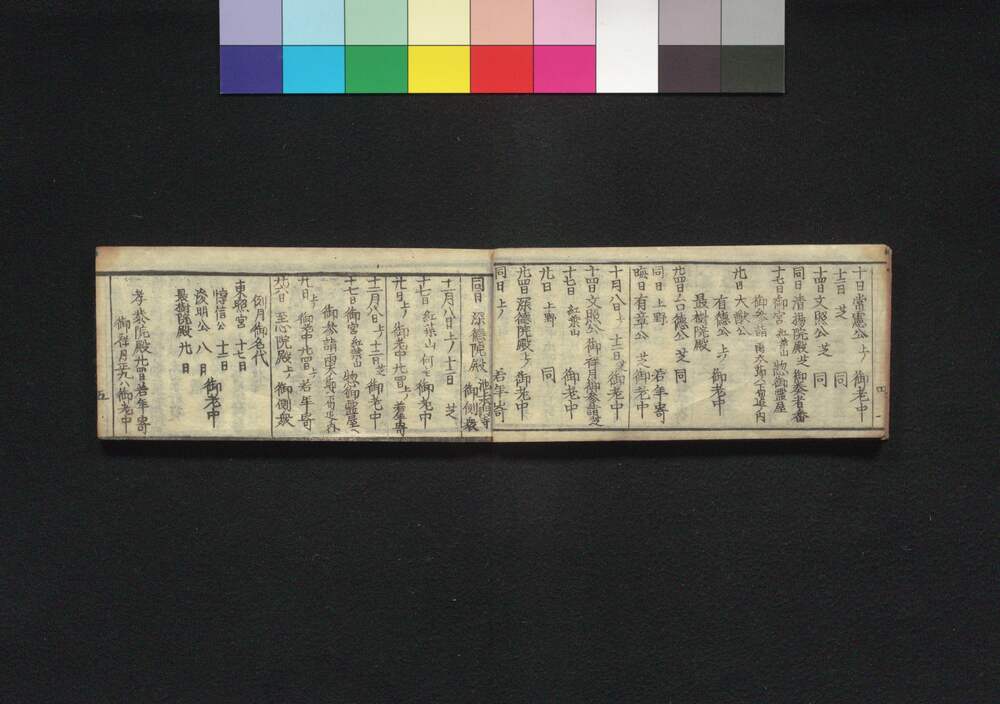 十日 常憲公 上ノ 御老中
十二日 芝 同
十四日 文昭公 芝 同
同日 清揚院殿 芝 御奏者番
十七日 御宮 紅葉山 惣御霊屋
御参詣
廿日 大猷公
有徳公 上ノ 御老中
最樹院殿
廿四日 台徳公 芝 同
同日 上野 若年寄
晦日 有章公 芝 御老中
十月八日 上ノ 十二日 芝 御老中
十四日 文昭公 御祥月御参詣 芝
十七日 紅葉山 御老中
廿日 上野 同
廿四日 深徳院殿 上ノ 御老中
同日 上ノ 若年寄
同日 深徳院殿 御側衆
十一月八日 上ノ 十二日 芝
十七日 紅葉山 何モ御老中
廿日 上ノ 御老中 廿四日 上ノ 若年寄
十二月八日 上ノ 十二日 芝 御老中
十七日 御宮 紅葉山 惣御霊屋へ
御参詣
廿日 上ノ 御老中 廿四日 上ノ 若年寄
廿六日 至心院殿 上ノ 御側衆
例月御名代
東照宮 十七日
惇信公 十二日
浚明公 八日 御老中
最樹院殿 廿日
孝恭院殿 廿四日 若年寄
御祥月 御老中
四
五